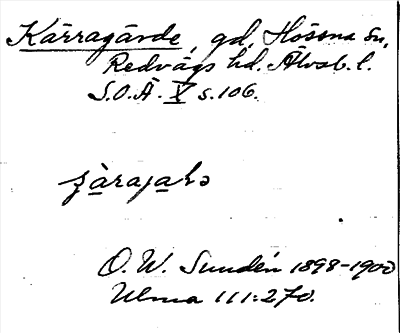 Kärragärde, gd, Hössna sn,
Redvägs hd. Älvsb. l.
S.O.Ä. V s.106.
O. W. Sundén 1898-1900
Ulma 111:270.